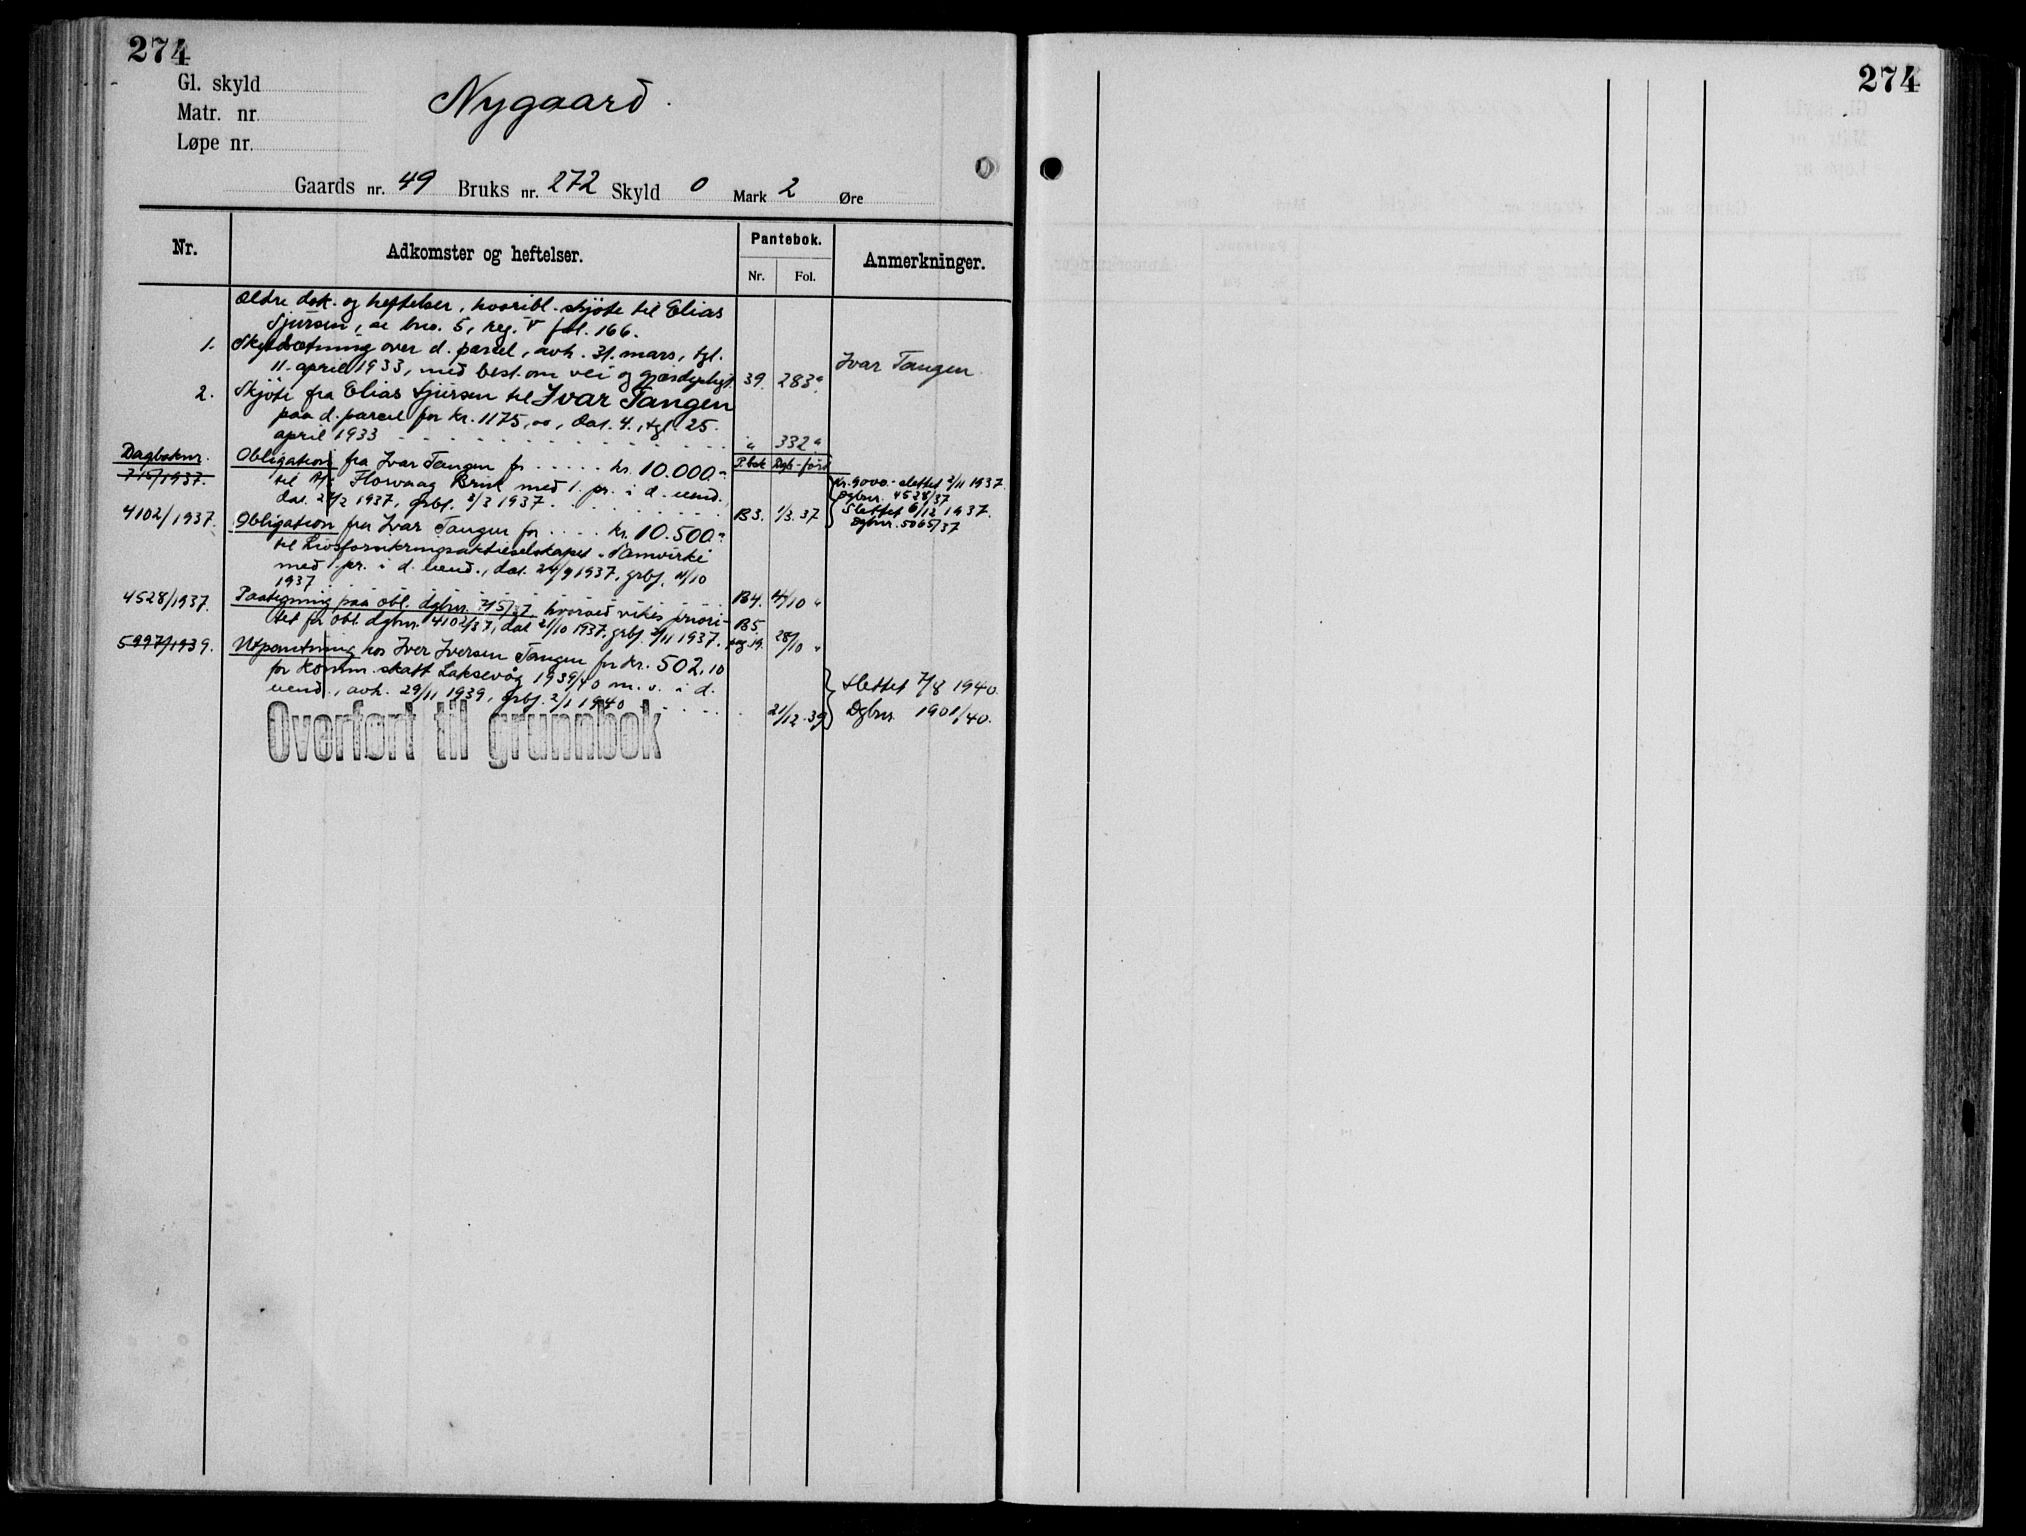 274
Gl. skyld
Matr. nr.
Løpe nr.
Nygaard.
Gaards nr. 49 Bruks nr. 272 Skyld 0 Mark 2 Øre
Nr.
Adkomster og heftelser.
Pantebok.
Nr. Fol.
Anmerkninger.
Ældre dok. og heftelser, hvoribl. skjøte til Elias
Sjursen, se bno. 5, reg. V fol. 166.
1. Skyldsætning over d. parcel, avh. 31. mars, tgl.
11. april 1933, med best. om vei og gjærdepligt 39. 283a
Ivar Tangen.
2. Skjøte fra Elias Sjursen til Ivar Tangen
paa d. parcel for kr. 1175,00, dat. 4., tgl. 25.
april 1933 " 332a
Dagboknr. P.bok Dagb-ført
715/1937. Obligation fra Ivar Tangen for kr. 10.000.-
til A/S Florvaag Bruk med 1. pr. i d. eiend.,
dat. 2/3 1937. B3. 1/3.37
Kr. 9000.- slettet 2/11 1937.
Dgbnr. 4528/37
Slettet 6/12 1937.
Dgbnr. 5065/37
4102/1937. Obligation fra Ivar Tangen for kr. 10.500.-
til Livsforsikringsaktieselskapet Samvirke
med 1. pr. i d. eiend., dat. 24/9 1937, grbf. 11/10
1937 B4. 4/10 "
4528/1937. Paategning paa obl. dgbnr. 715/37, hvorved vikes priori-
tet for obl. dgbnr. 4102/37, dat. 21/10 1937, grbf. 2/11 1937. B5 28/10 "
5997/1939. Utpantning hos Iver Iversen Tangen for kr. 502,10
for komm. skatt Laksevåg 1939/40 m. v. i d.
eiend., avh. 29/11 1939, grbf. 2/1 1940 21/12.39
Slettet 7/8 1940.
Dgbnr. 1901/40.
Overført til grunnbok
274